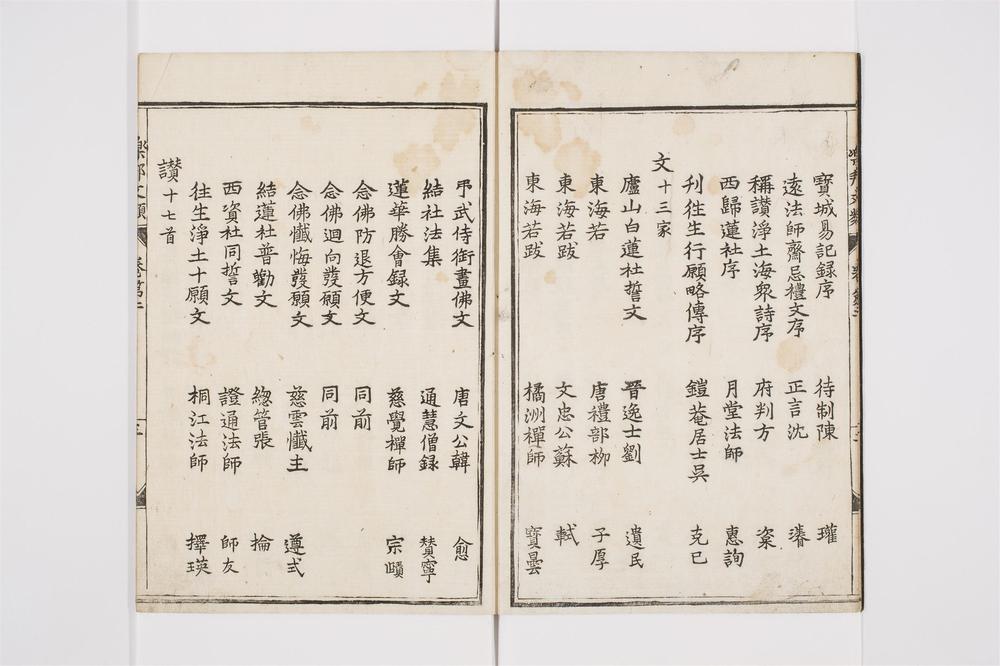 寶城易記録序 待制陳 瓘
遠法師齋忌禮文序 正言沈 濬
稱讃淨土海衆詩序 府判方 楶
西歸蓮社序 月堂法師 惠詢
刋徃生行願略傳序 鎧菴居士吳 克巳
文十三家
廬山白蓮社誓文 晉逸士劉 遺民
東海若 唐禮部栁 子厚
東海若跋 文忠公蘇 軾
東海若跋 橘洲禪師 寳曇
弔武侍御畫佛文 唐文公韓 愈
結社法集 通慧僧録 賛寧
蓮華勝會録文 慈覺禪師 宗賾
念佛防退方便文 同前
念佛迴向發願文 同前
念佛懺悔發願文 慈雲懺主 遵式
結蓮社普勸文 緫管張 掄
西資社同誓文 證通法師 師友
往生淨土十願文 桐江法師 擇瑛
讃十七首
樂邦文類 卷第二